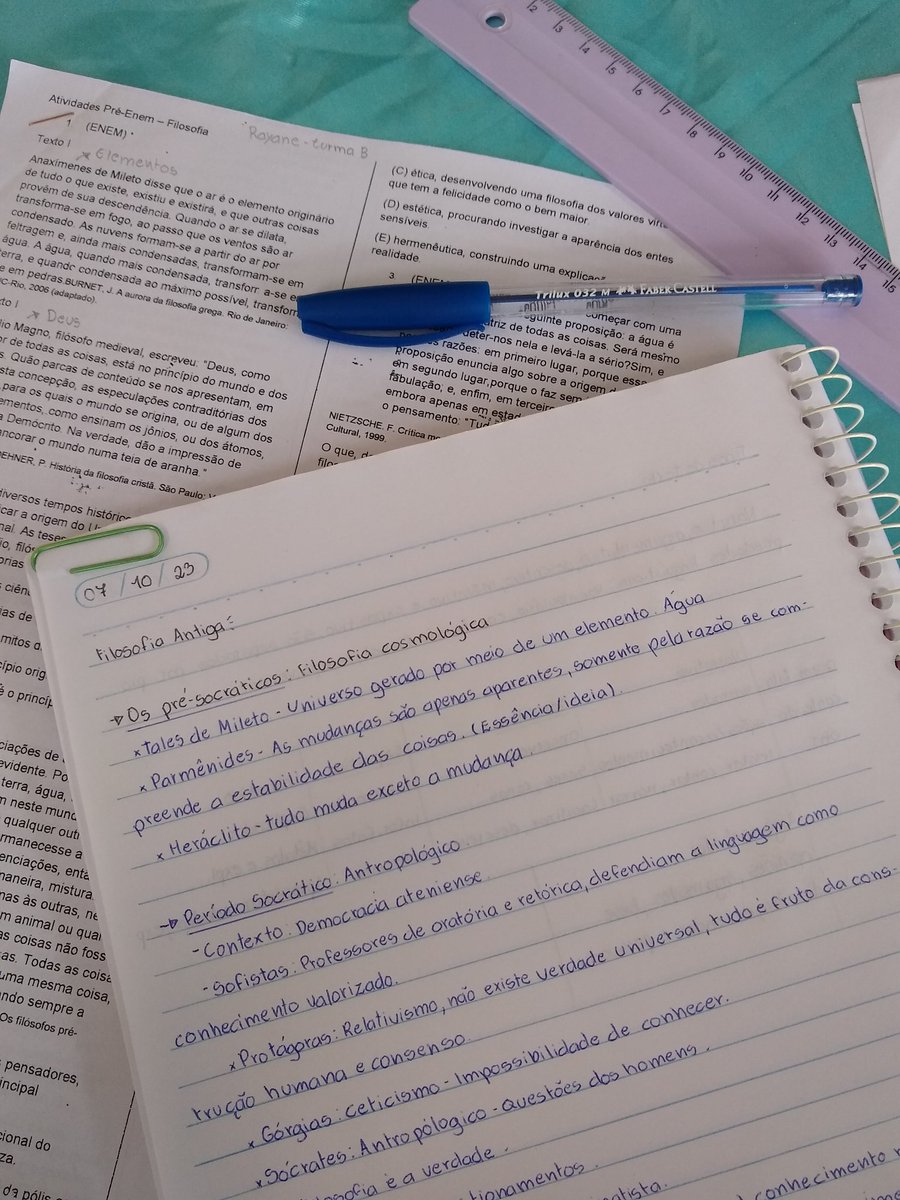 Atividades Pré-Enem – Filosofia
Rayane - turma B
1 (ENEM)
Texto I
Elementos
Anaxímenes de Mileto disse que o ar é o elemento originário
de tudo o que existe, existiu e existirá, e que outras coisas
provêm de sua descendência. Quando o ar se dilata,
transforma-se em fogo, ao passo que os ventos são ar
condensado. As nuvens formam-se a partir do ar por
feltragem e, ainda mais condensadas, transformam-se em
água. A água, quando mais condensada, transforma-se em
terra, e quando condensada ao máximo possível, transform
e em pedras.BURNET, J. A aurora da filosofia grega. Rio de Janeiro:
C-Rio, 2006 (adaptado).
Deus
io Magno, filósofo medieval, escreveu: "Deus, como
or de todas as coisas, está no princípio do mundo e dos
s. Quão parcas de conteúdo se nos apresentam, em
sta concepção, as especulações contraditórias dos
para os quais o mundo se origina, ou de algum dos
ementos, como ensinam os jônios, ou dos átomos,
a Demócrito. Na verdade, dão a impressão de
ancorar o mundo numa teia de aranha."
OEHNER, P. História da filosofia cristã. São Paulo:
diversos tempos históric
car a origem do
nal. As teses
mitos
cípio orig
é o princíp
ciações de
evidente. Po
terra, água,
n neste mund
qualquer outr
rmanecesse a
enciações, enta
naneira, mistura
nas às outras, ne
m animal ou qua
as coisas não foss
as. Todas as coisa
uma mesma coisa,
ndo sempre a
Os filósofos pré-
pensadores,
incipal
cional do
za.
da pólis
(C) ética, desenvolvendo uma filosofia dos valores
que tem a felicidade como o bem maior.
(D) estética, procurando investigar a aparência dos entes
sensíveis.
(E) hermenêutica, construindo uma explicaç
realidade.
3
começar com uma
guinte proposição: a água é
triz de todas as coisas. Será mesmo
deter-nos nela e levá-la a sério?Sim, e
razões: em primeiro lugar, porque essa
proposição enuncia algo sobre a origem
em segundo lugar,porque o faz sem
fabulação; e, enfim, em terceiro
embora apenas em estad
o pensamento: "Tud
NIETZSCHE. F. Crítica mo
Cultural, 1999.
O que, d
Trilux 032 M FABER-CASTELL
2 3 4 5 6 7 8 9 10 11 12 13 14 15
07 / 10 / 23
Filosofia Antiga:
Os pré-socráticos: Filosofia cosmológica
x Tales de Mileto - Universo gerado por meio de um elemento. Água
x Parmênides - As mudanças são apenas aparentes, somente pela razão se com-
preende a estabilidade das coisas. (Essência/ideia).
x Heráclito - tudo muda exceto a mudança
Período Socrático: Antropológico
- Contexto: Democracia ateniense.
- Sofistas: Professores de oratória e retórica, defendiam a linguagem como
conhecimento valorizado.
x Protágoras: Relativismo, não existe verdade universal, tudo é fruto da cons-
trução humana e consenso.
x Górgias: Ceticismo - Impossibilidade de conhecer.
x Sócrates: Antropólogico - Questões dos homens.
losofia é a verdade.
tionamentos.
atista.
conhecimento